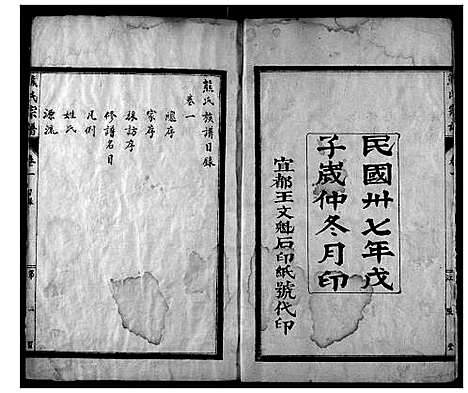 民國卅七年戊
子歲仲冬月印
宜都王文魁石印紙號代印
熊氏族譜目錄
卷一
宗序
採訪序
修譜名目
凡例
姓氏
源流
熊氏宗譜
卷一